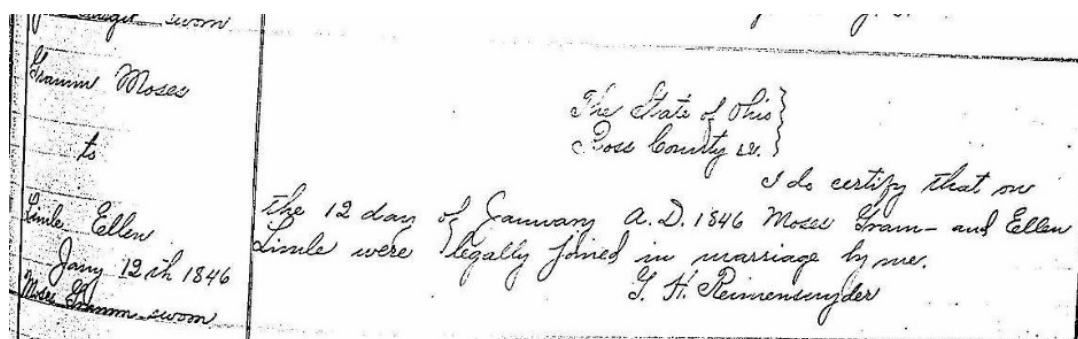 sworn
Gramm Moses
to
Limle Ellen
Jany 12th 1846
Moses Gramm sworn
The State of Ohio }
Ross County ss. }
I do certify that on
the 12 day of January A.D. 1846 Moses Gram- and Ellen
Limle were legally joined in marriage by me.
J. H. Reimensnyder